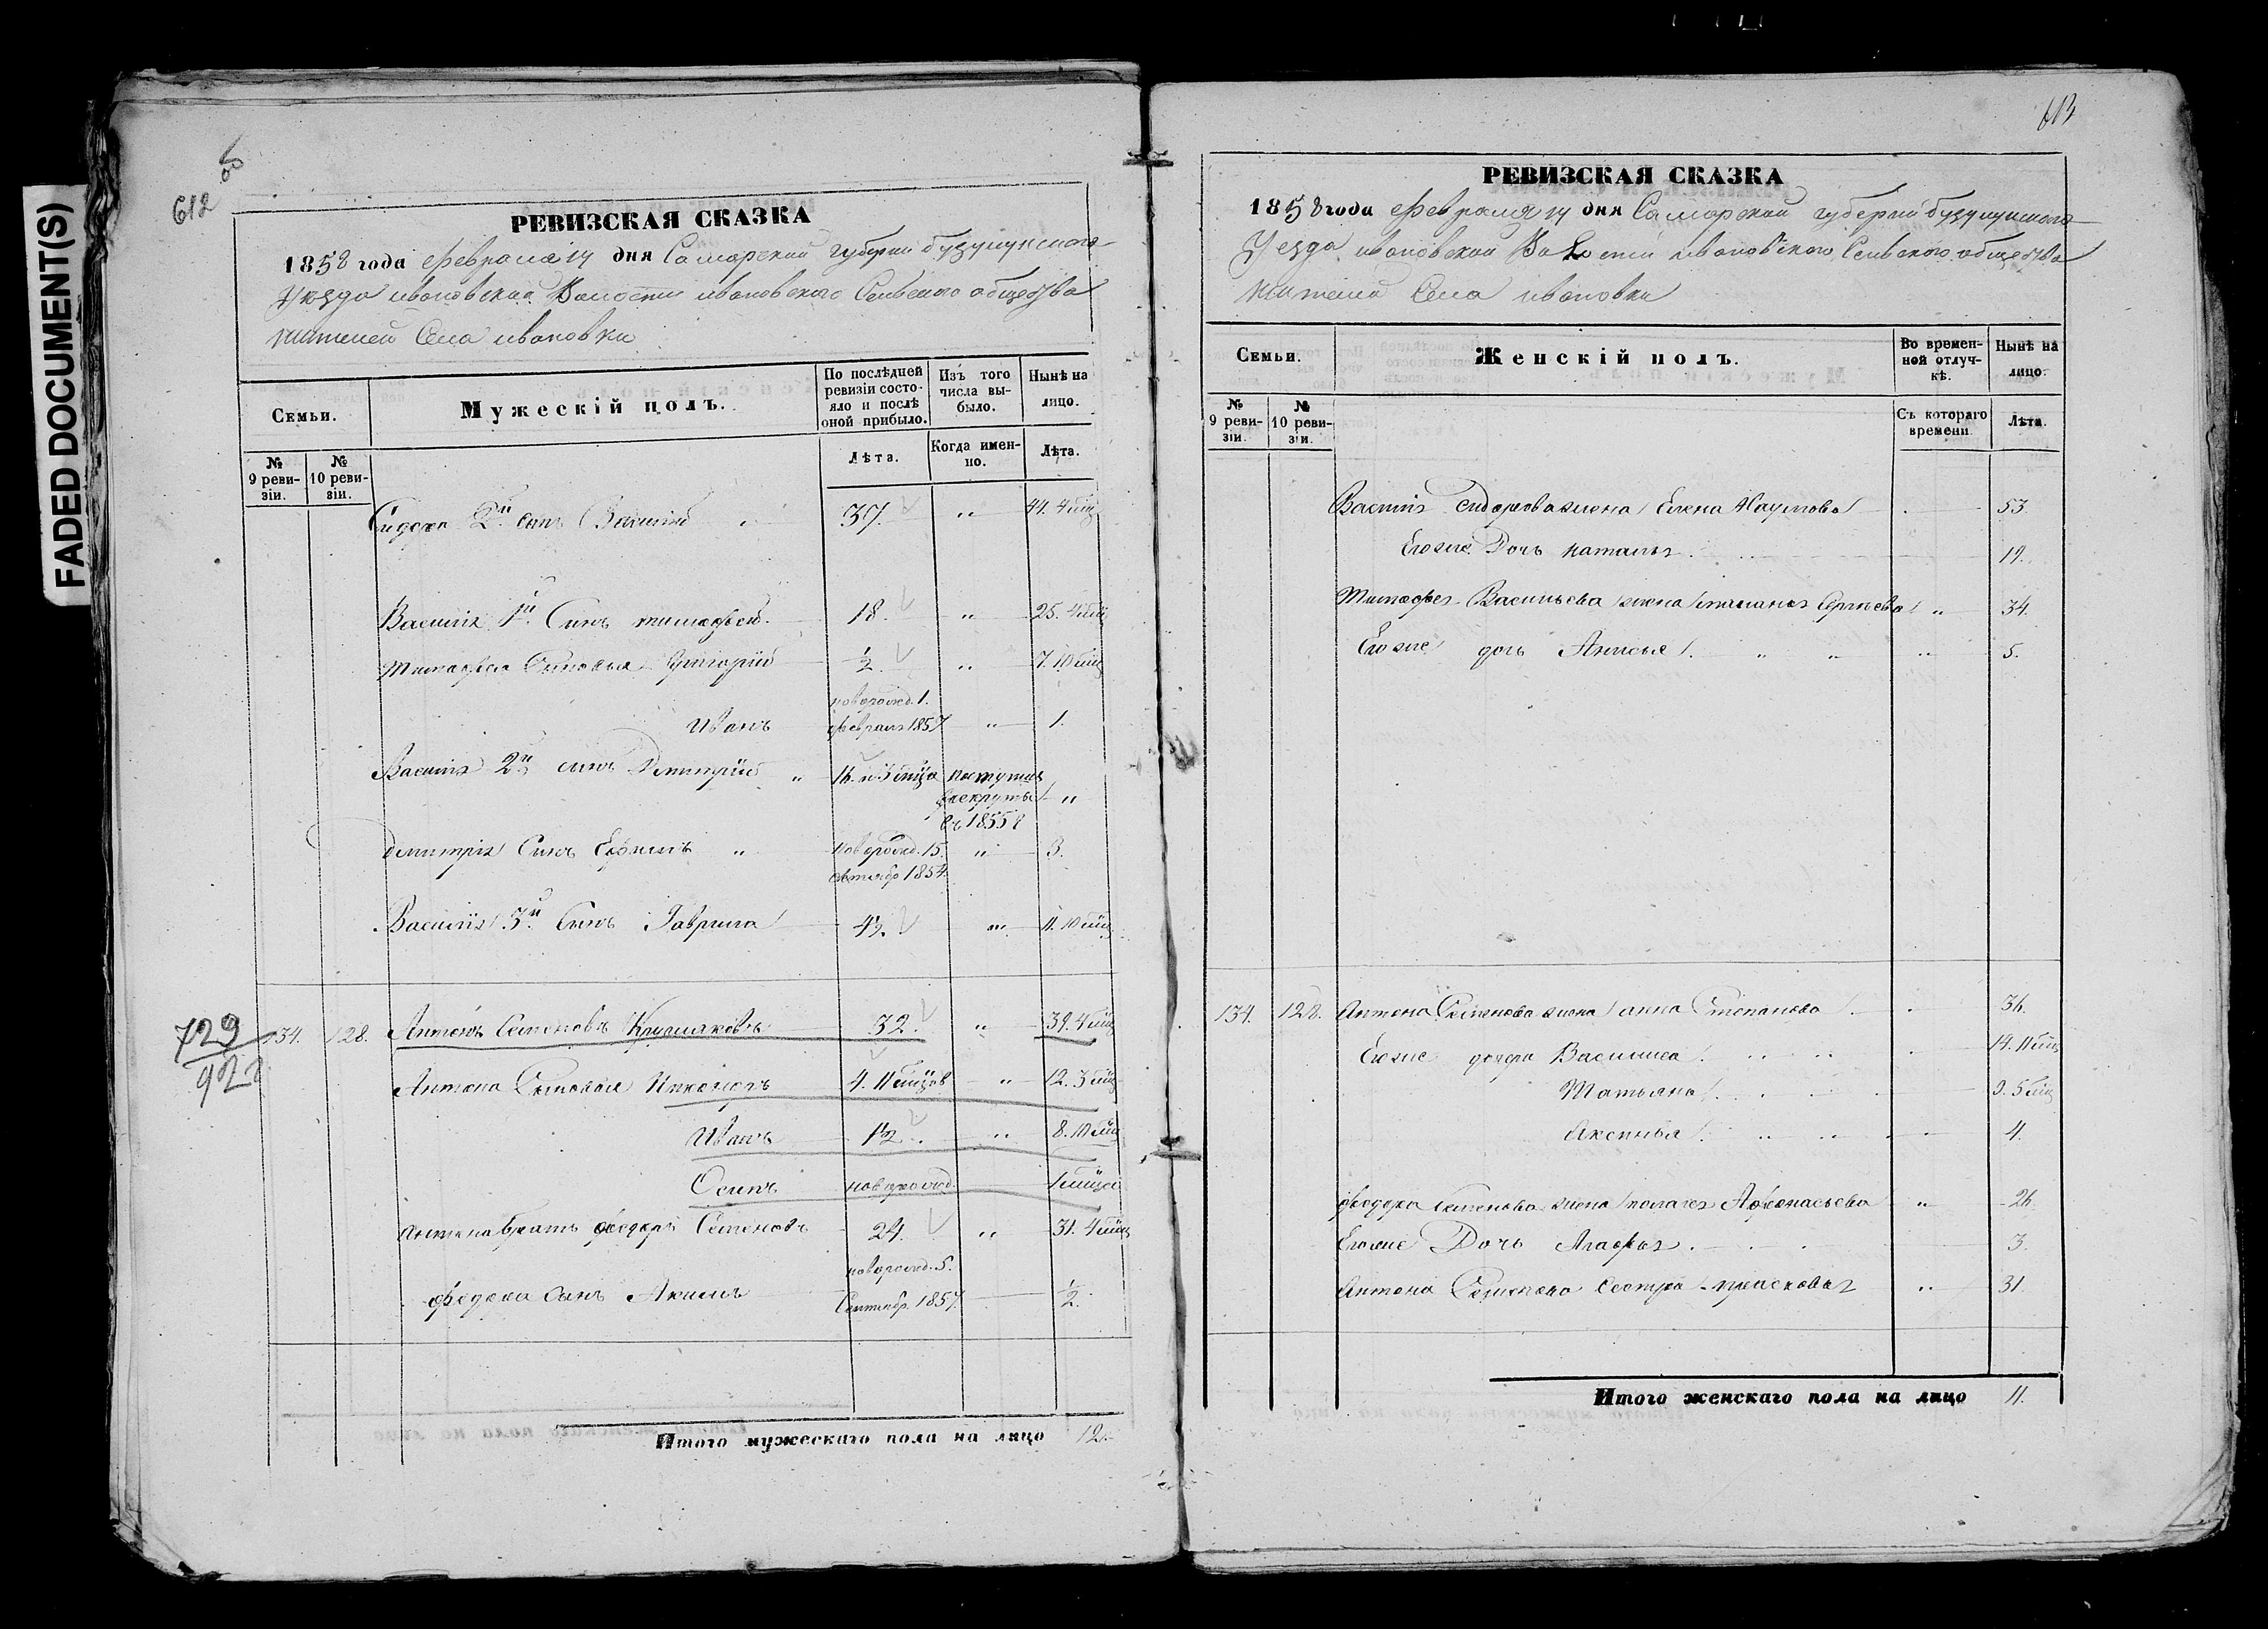 FADED DOCUMENT(S)
612
РЕВИЗСКАЯ СКАЗКА
1858 года февраля 14 дня Самарской губернии бузулукскаго
Уезда ивановской Волости ивановского Сельского общества
жителей Села ивановки
Семьи.
Мужескій полъ.
По послѣдней ревизіи состояло и послѣ оной прибыло.
Изъ того числа выбыло.
Нынѣ на лицо.
№ 9 ревизіи.
№ 10 ревизіи.
Лѣта.
Когда именно.
Лѣта.
Сидора 2й сынъ Василий " 37. " 44. 4 мѣц
Василія 1й Сынъ тимофей. 18. " 25. 4 мѣц
тимофея Сыновья Григорій ½ " 7. 10 мѣц
Иванъ новорожд. 1. февраля 1857 " 1.
Василія 2й сынъ Дмитрій " 16. и 3 мѣца поступил в рекруты въ 1855 г "
дмитрія Сынъ Ефимъ " новорожд. 15. октября 1854. " 3.
Василія 3й Сынъ Гаврила 4½ " 11. 10 мѣц
729
134. 128. Антонъ Семеновъ 32. " 39. 4 мѣц
Антона Сыновья Никоноръ 4. 11 мѣцов " 12. 3 мѣц
Иванъ 1½ " 8. 10 мѣц
Осипъ новорожд. 1 мѣцъ
Антона братъ федоръ Семеновъ 24. " 31. 4 мѣц
федора сынъ Акимъ новорожд. 5. Сентябр. 1857. ½
Итого мужескаго пола на лицо 12.
613
РЕВИЗСКАЯ СКАЗКА
1858 года февраля 14 дня Самарской губерніи бузулукскаго
Уезда ивановской Волости ивановского Сельского общества
жителей Села ивановки
Семьи.
Женскій полъ.
Во временной отлучкѣ.
Нынѣ на лицо.
№ 9 ревизіи.
№ 10 ревизіи.
Съ котораго времени
Лѣта.
Василія сидорова жена Елена Наумова 53
Егоже Дочь наталья 19.
Тимофея Васильева жена татьяна Сергеева " 34.
Егоже дочь Анисья " 5.
134. 128. Антона Семенова жена анна Степанова 36.
Егоже дочери Василиса 14. 11 мѣц
Татьяна 9. 5 мѣц
Аксинья 4.
федора семенова жена пелагея Афонасьева " 26
Егоже Дочь Агафья 3.
Антона Семенова Сестра прасковья " 31
Итого женскаго пола на лицо 11.